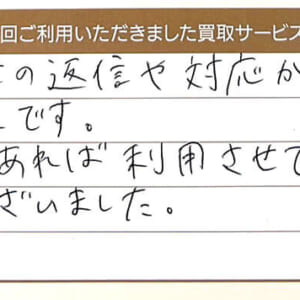 回ご利用いただきました買取サービス
の返信や対応か
です。
あれば利用させて
ざいました。